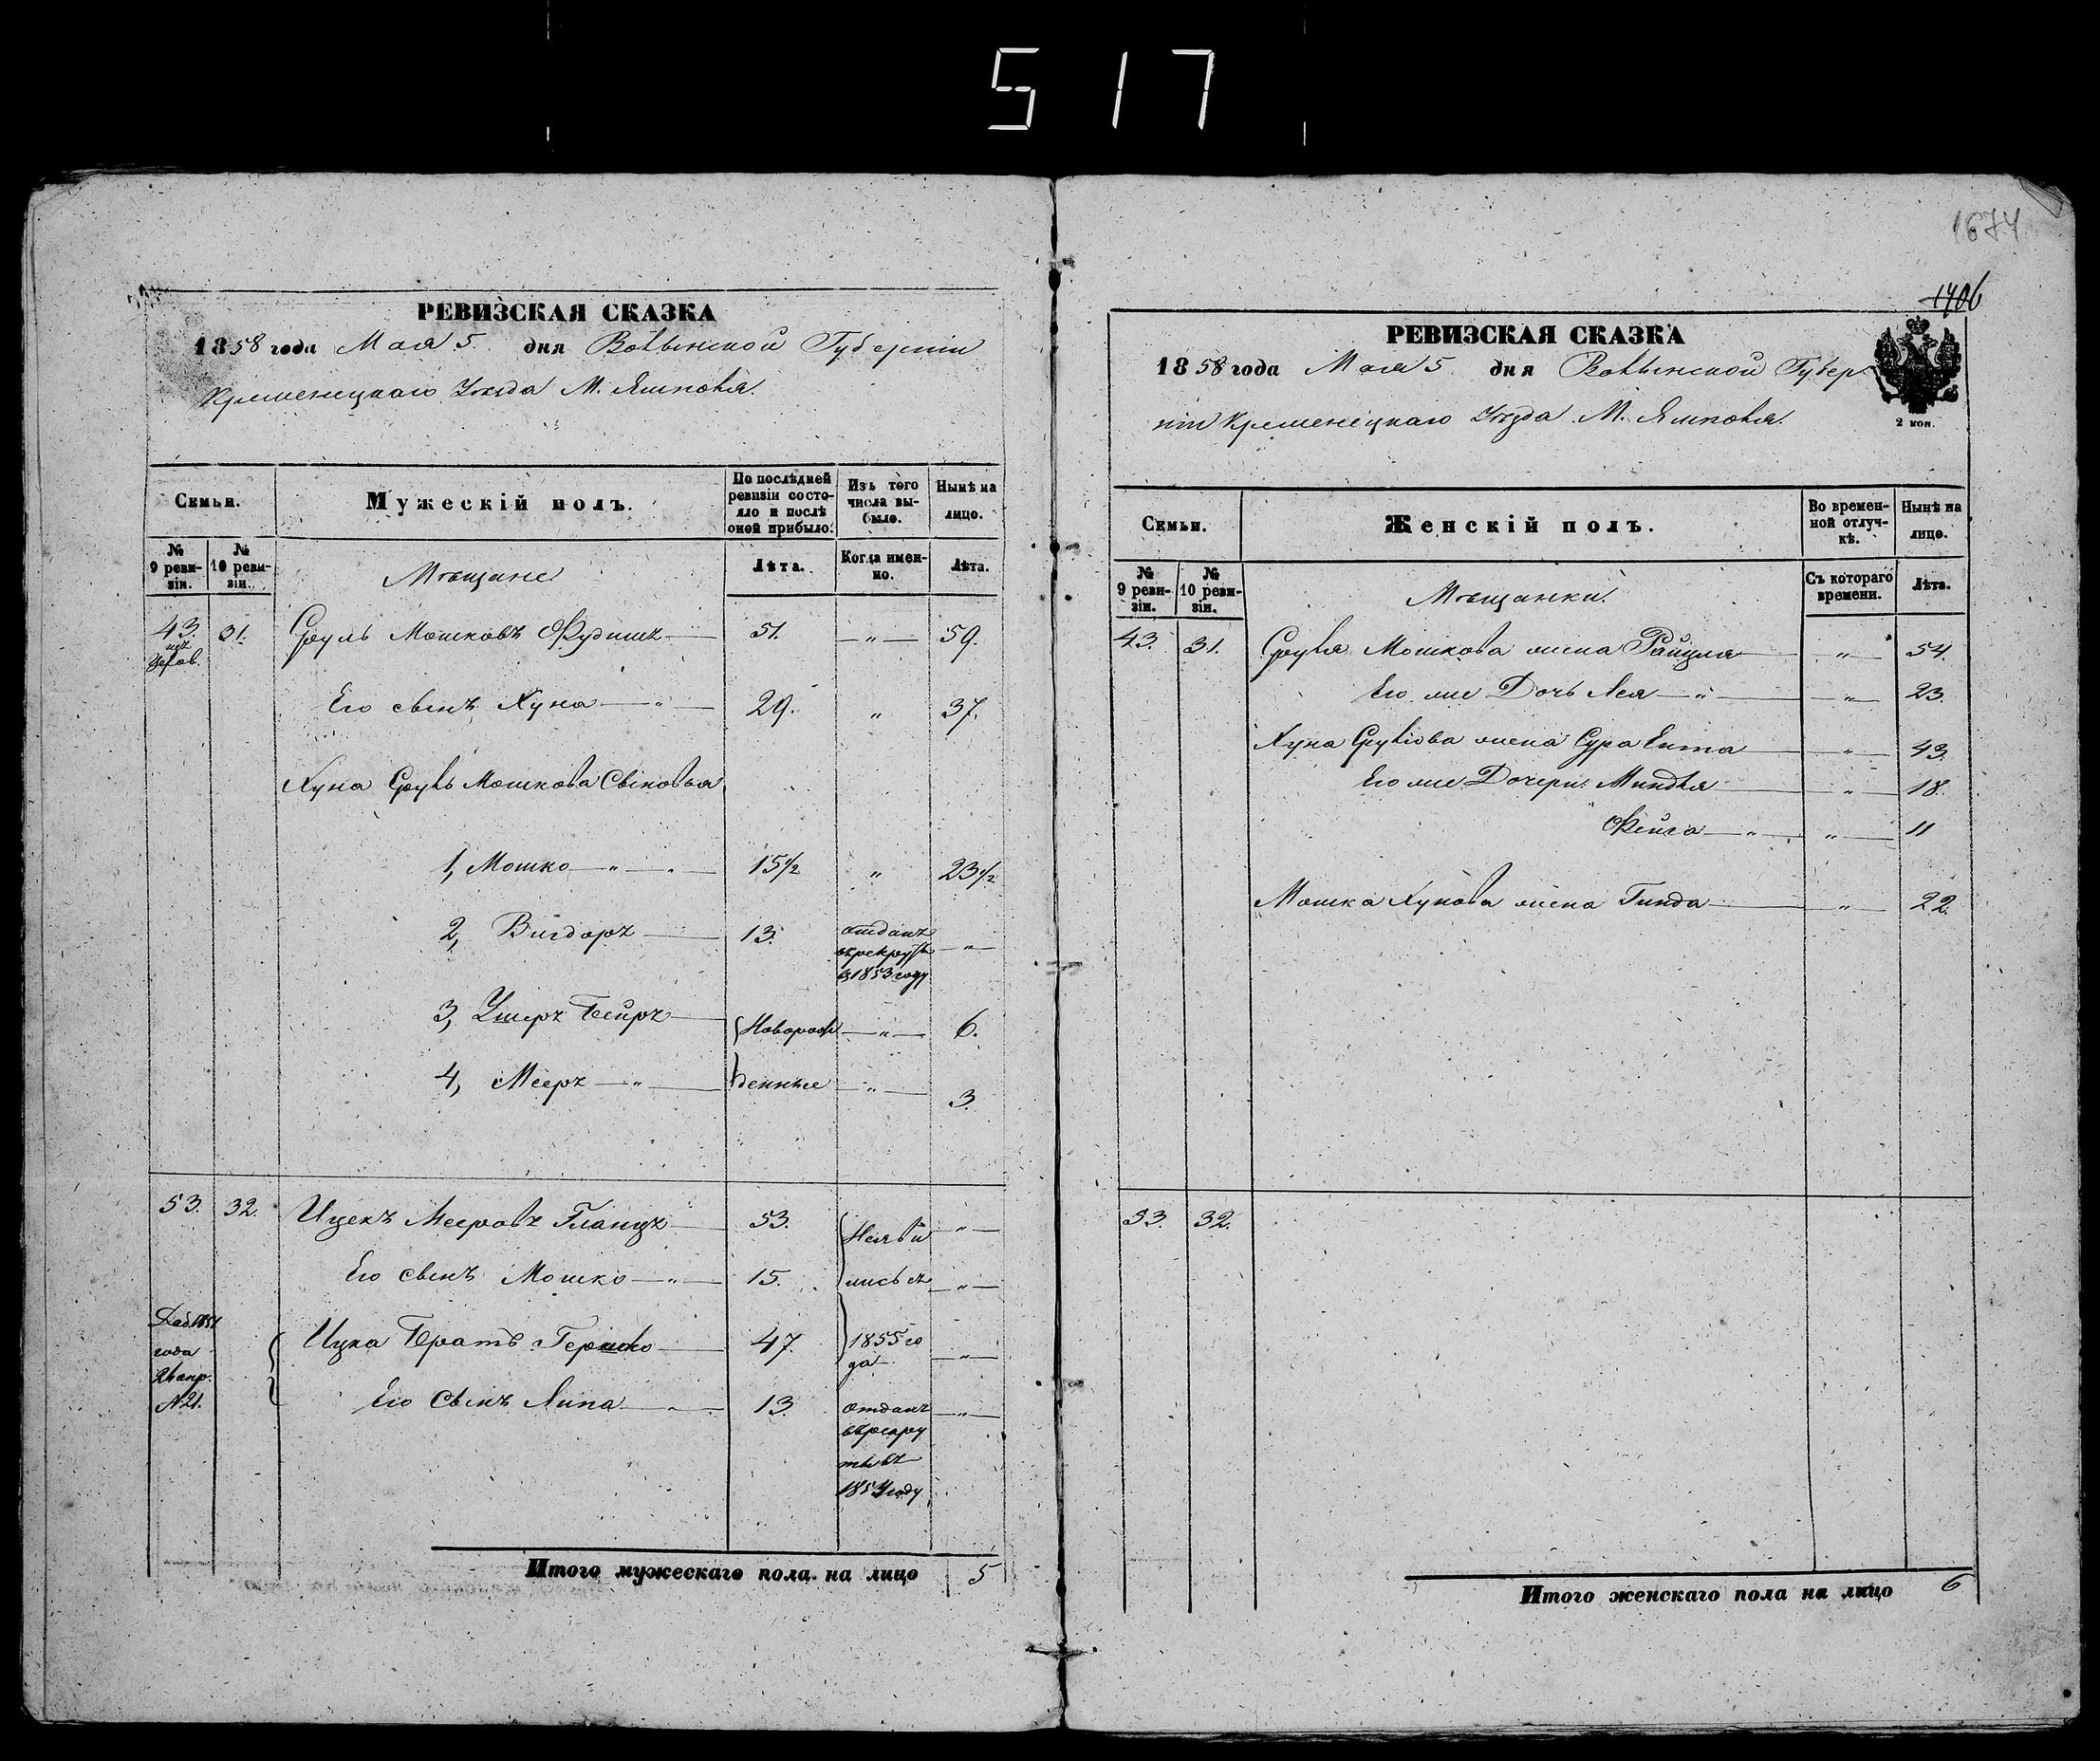 517
1674
1706
РЕВИЗСКАЯ СКАЗКА
1858 года Мая 5. дня Волынской Губерніи
Кременецкаго Уѣзда М. Ямполя.
Семьи.
Мужескій полъ.
По послѣдней ревизіи состояло и послѣ оной прибыло.
Изъ того числа выбыло.
Нынѣ на лицо.
№ 9 ревизіи.
№ 10 ревизіи.
Мѣщане
Лѣта.
Когда именно.
Лѣта.
43. 31. Сруль Мошковъ Фудимъ 51. — " — 59.
Его сынъ Хуна — " — 29. " 37.
Хуна Сруль Мошкова Сыновья
1, Мошко — " — 15½ " 23½
2, Вигдоръ 13. отданъ
въ рекруты
въ 1853 году — " —
3, Ушеръ Бейръ Новорож — " — 6.
4, Мееръ — " — денные — " — 3.
53. 32. Ицекъ Мееровъ Гланцъ 53. Неяви — " —
Его сынъ Мошко — " — 15. лись съ — " —
Ицка Братъ Гершко 47. 1855 го
да — " —
Доб. 1851
года
№ 21.
Его Сынъ Липа 13. отданъ — " —
въ рекру
ты въ
1854 году
Итого мужескаго пола на лицо 5
РЕВИЗСКАЯ СКАЗКА
1858 года Мая 5 дня Волынской Губер
ніи Кременецкаго Уѣзда М. Ямполя.
2 коп.
Семьи.
Женскій полъ.
Во временной отлучкѣ.
Нынѣ на лицо.
№ 9 ревизіи.
№ 10 ревизіи.
Мѣщанки.
Съ котораго времени.
Лѣта.
43. 31. Сруля Мошкова жена Райцля — " — 54.
Его же Дочь Лея — " — " — 23.
Хуна Срулiова жена Сура Ента — " — 43.
Его же Дочери: Миндля — " — 18.
Фейга — " — " — 11
Мошка Хунова жена Гинда — " — 22.
53. 32.
Итого женскаго пола на лицо 6